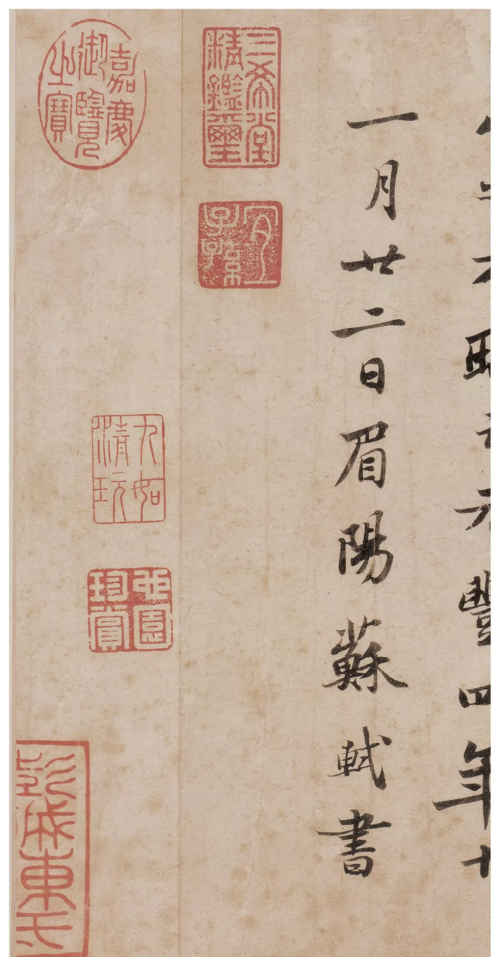 元豐四年十
一月廿二日眉陽蘇軾書
三希堂精鑑璽
宜子孫
嘉慶御覽之寶
九如清玩